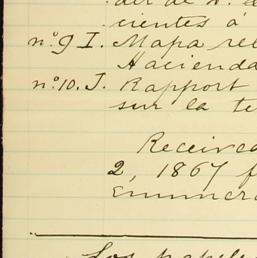 cientes á
nº 9 I. Mapa rel
Hacienda
nº 10. J. Rapport
sur la te
Received
2, 1867 f
enumera
Los papeles